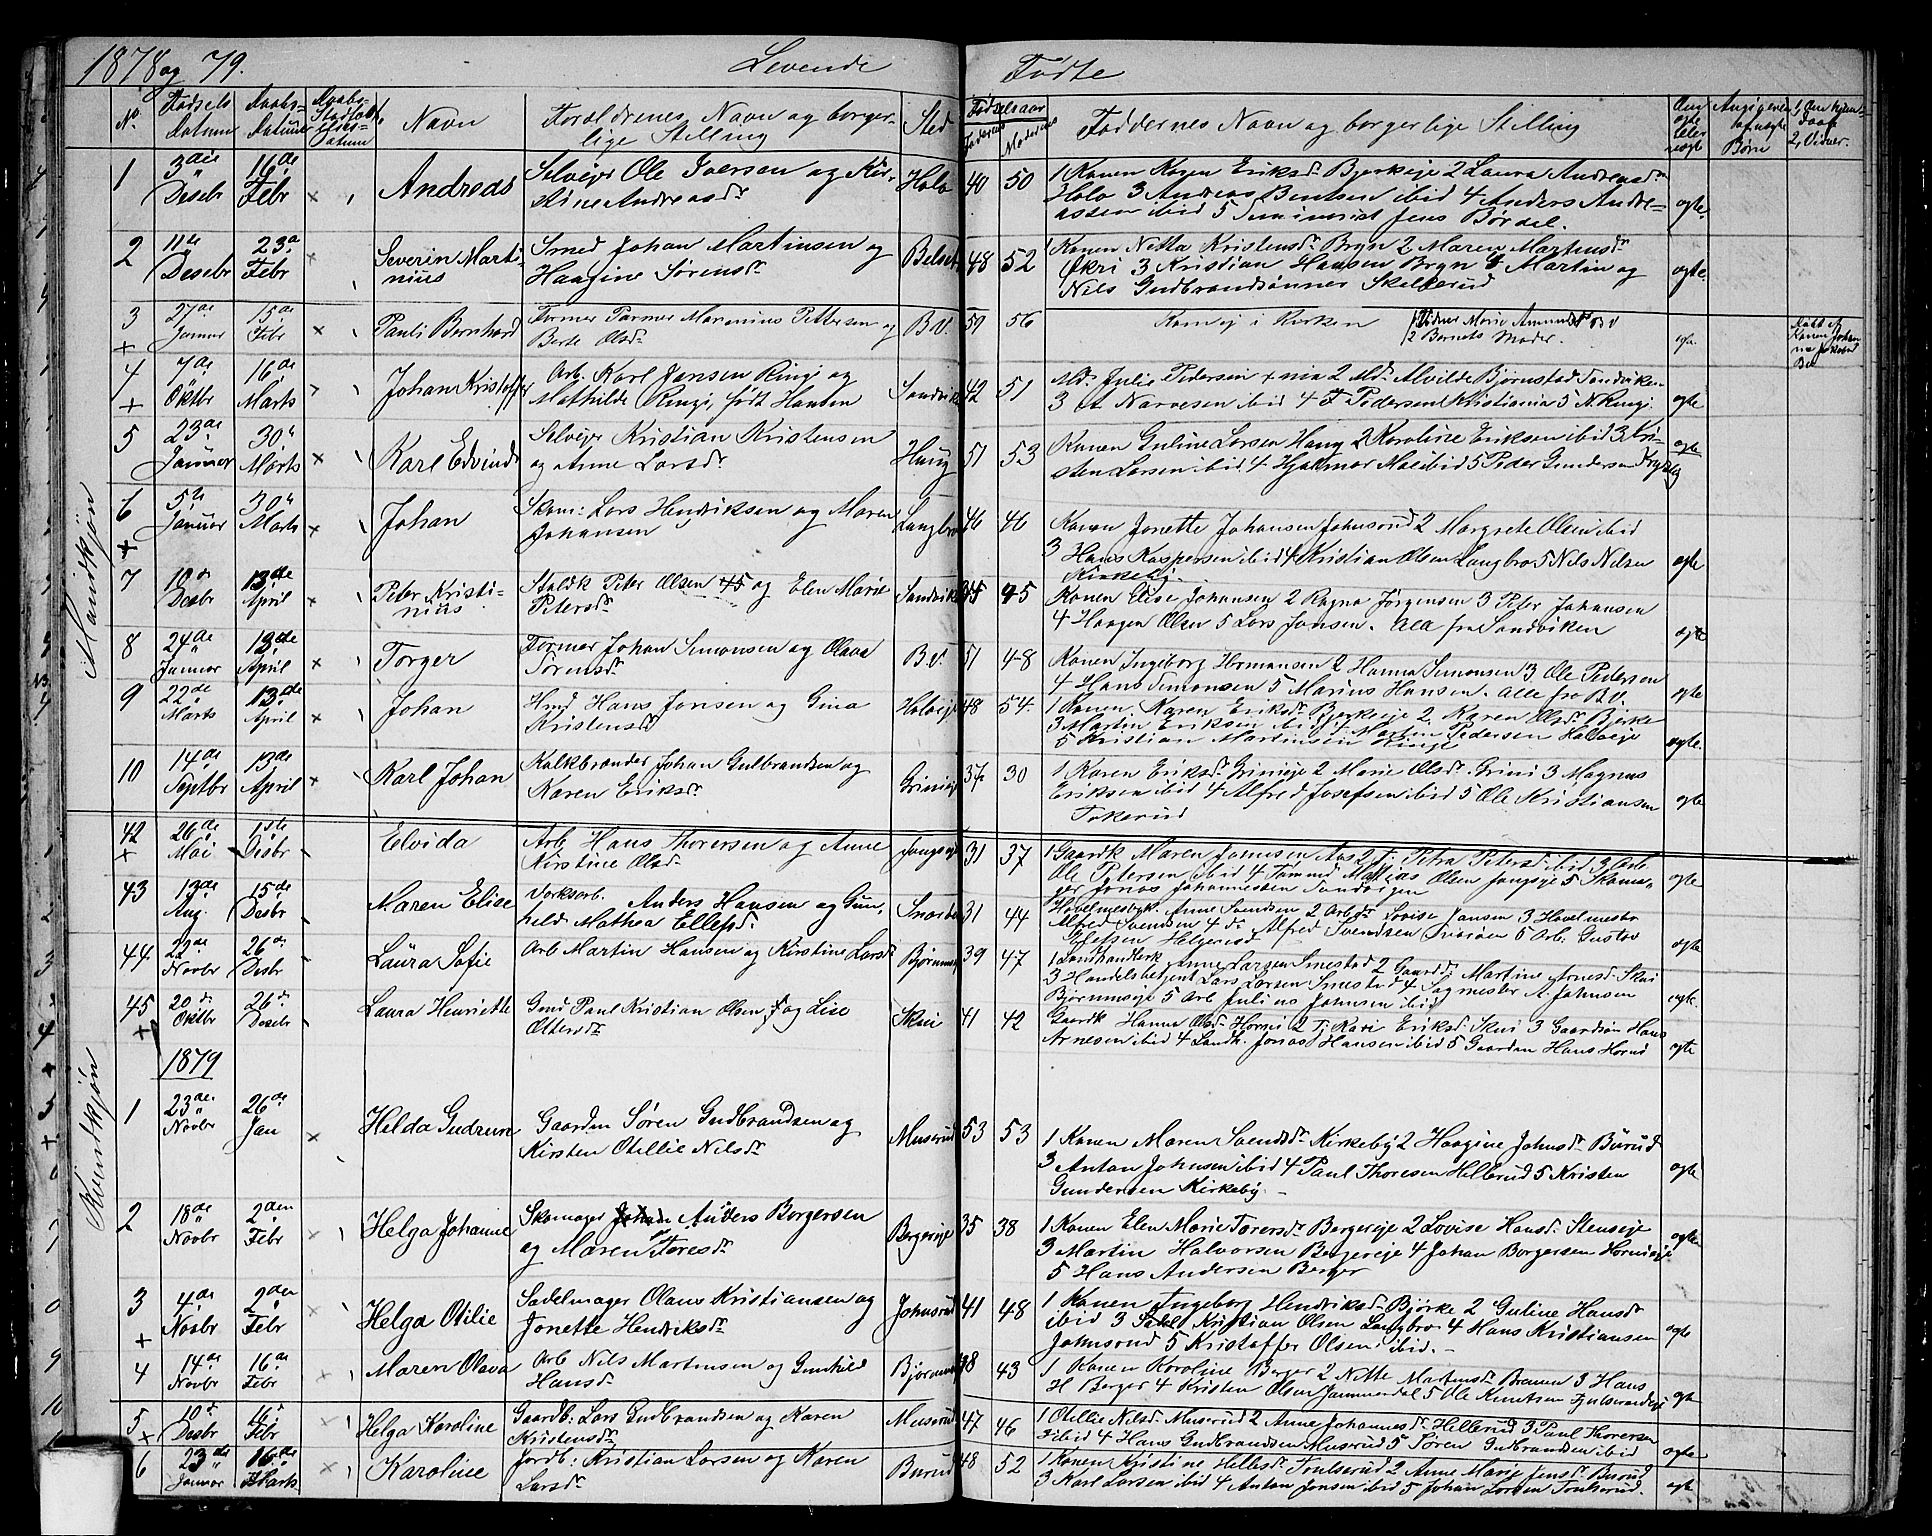 1878 og 79.
Levende
Fødte
No. Fødsels Datum Daabs- Datum Navn Forældrenes Navn og borger-
lige Stilling Sted Fødselsaar Faderens Moderens Faddernes Navn og borgerlige Stilling
Mandkjøn
1 3die Desebr 16de Febr × Andreas Selvejer Ole Iversen og Kir-
stine Andreasdr Holo 40 50 1 Konen Karen Eriksdr Bjerkeje 2 Laura Andreasdr
Holo 3 Andreas Bentsen ibid 4 Anders Andre-
assen ibid 5 Seminarist Jens Bordal. egte.
2 11te Desebr 23de Febr × Severin Marti-
nius Smed Johan Martinsen og
Haagine Sørensdr Belset 48 52 1 Konen Netta Kristensdr Bryn 2 Maren Martinsdr
Økri 3 Kristian Hansen Bryn 4 Martin og
Nils Gudbrandsønner Skelterud egte.
3 + 27de Januar 15de Febr × Pauli Bernhard Former Marenius Pettersen og
Berte Olsdr B.V. 50 56 Kom ej i Kirken 1 Vidne Marie Amundsdr BV
2 Barnets Moder. egte
4 + 7de Oktbr 16de Marts Johan Kristoffer Arb. Karl Jensen Ringi og
Mathilde Ringi, født Hansen Sandvika 42 51 Md. Julie Pedersen ×nia 2 Md. Alvilde Bjørnstad Sandviken
3 A Narvesen ibid 4 F Pedersen Kristiania 5 N. Ringi. egte
5 23de Januar 30te Marts × Karl Edvind Selvejer Kristian Kristensen
og Anne Larsdr Haug 51 53 Konen Guline Larsen Haug 2 Karoline Eriksen ibid 3 Kri-
sten Larsen ibid 4 Hjalmar Moe ibid 5 Peder Gundersen egte
6 + 5te Januar 30te Marts × Johan Skom: Lars Hendriksen og Maren
Johansen Langbro 46 46 Konen Jonette Johansen Johnsrud 2 Margrete Olsen ibid
3 Hans Kaspersen ibid 4 Kristian Olsen Langbro 5 Nils Nilsen
Kirkeby. egte
7 10de Desbr 13de April × Peter Kristi-
nius Staldk Peter Olsen 45 og Elen Marie
Petersdr Sandvika 45 45 Konen Elise Johansen 2 Ragna Jørgensen 3 Peter Johansen
4 Haagen Olsen 5 Lars Jonsen. Alle fra Sandviken egte
8 24de Januar 13de April × Torger Former Johan Simonsen og Olava
Sørensdr B.V. 51 48 Konen Ingeborg Hermansen 2 Hanna Simonsen 3 Ole Pedersen
4 Hans Simonsen 5 Marius Hansen. Alle fra B.V. egte
9 22de Marts 13de April × Johan Hmd Hans Jonsen og Gina
Kristensdr Holoeje 48 54 1 Konen Karen Eriksdr Bjerkeje 2 Karen Olsdr Bjerke
3 Martin Eriksen ibid 4 Martin Pedersen Holoeje
5 Kristian Martinsen Ringi egte.
10 14de Septbr 13de April × Karl Johan Kalkbrænder Johan Gulbrandsen og
Karen Eriksdr Grinieje 37 30 1 Karen Eriksdr Grinieje 2 Marie Olsdr Grini 3 Magnus
Eriksen ibid 4 Alfred Josefsen ibid 5 Ole Kristiansen
Tokerud egte
Kvindkjøn
42 + 26de Mai 1ste Desbr Elvida Arb. Hans Thoresen og Anne
Kirstine Olsdr 31 37 1 Gaardk Maren Jonnesen Aas 2 Pi. Petra Petersdr ibid 3 Arb.
Ole Petersen ibid 4 Tømmd Mathias Olsen Jongseje 5 Skoma-
ger Jonas Johannessen Sandvigen egte
43 13de Aug. 15de Desbr Maren Elise Værksarb. Anders Hansen og Gun-
hild Mathea Ellefsdr 31 44 Høvelmesbyk. Anne Svendsen 2 Arb dr Lovise Jansen 3 Høvelmesbr
Alfred Svendsen 4 do Alfred Svendsen 5 Arb. Gustav
Ellefsen Helgerud egte
44 22de Novbr 26de Desbr Laura Sofie Arb Martin Hansen og Kirstine Larsdr Bjørnum 39 47 1 Landhandlerk Anne Larsen Smestad 2 Gaardd. Martine Arnesdr Skui
3 Handelsbetjent Lars Larsen Smestad 4 Sagmester A. Johnsen
Bjørnumseje 5 Arb Julius Johnsen ibid egte.
45 + 20de Oktbr 26de Desebr Laura Henriette Gmd Paul Kristian Olsen, og Lise
Ottersdr Skui 41 42 Gaardk Hanna Olsdr Horni 2 Pi. Kari Eriksdr Skui 3 Gaardsøn Hans
Arnesen ibid 4 Landh. Jonas Hansen ibid 5 Gaardm Hans Horni egte
1879
1 23de Novbr 26de Jan × Helda Gudrune Gaardm Søren Gudbrandsen og
Kirsten Otillie Nilsdr Muserud 53 53 1 Konen Maren Svendsdr Kirkeby 2 Haagine Johnsdr Burud
3 Anton Johnsen ibid 4 Paul Thoresen Hellerud 5 Kristen
Gundersen Kirkeby. egte
2 18de Novbr 2den Febr × Helga Johanne Skomager Anders Borgersen
og Maren Toresdr Bergereje 35 38 1 Konen Elen Marie Torersdr Bergereje 2 Lovise Hansdr Stenseje
3 Martin Halvorsen Bergereje 4 Johan Borgersen Hornieje
5 Hans Andersen Berger egte
3 + 4de Novbr 2den Febr × Helga Otilie Sadelmager Olaus Kristiansen og
Jonette Hendriksdr Johnsrud 41 48 1 Konen Ingeborg Hendriksdr Bjerke 2 Guline Hansdr
ibid 3 Kristian Olsen Langbro 4 Hans Kristiansen
Johnsrud 5 Kristoffer Olsen ibid. egte
4 14de Novbr 16de Febr Maren Olava Arb Nils Martinsen og Gunhild
Hansdr Bjørnum 38 43 1 Konen Karoline Berger 2 Nitte Martinsdr Brenna 3 Hans
H Berger 4 Kristen Olsen Jammerdal 5 Ole Knutsen egte
5 + 10de Desbr 16de Febr × Helga Karoline Gaardb: Lars Gudbrandsen og Karen
Kristensdr Muserud 47 46 1 Otillie Nilsdr Muserud 2 Anne Johannesdr Hellerud 3 Paul Thoresen
ibid 4 Hans Gudbrandsen Muserud 5 Søren Gudbrandsen ibid egte
6 23de Januar 16de Marts × Karoline Jordb: Kristian Larsen og Karen
Larsdr Burud 48 52 1 Konen Kristine Hellesdr Toulserud 2 Anne Marie Jensdr Burud
3 Karl Larsen ibid 4 Anton Jonsen ibid 5 Johan Larsen Toulserud. egte